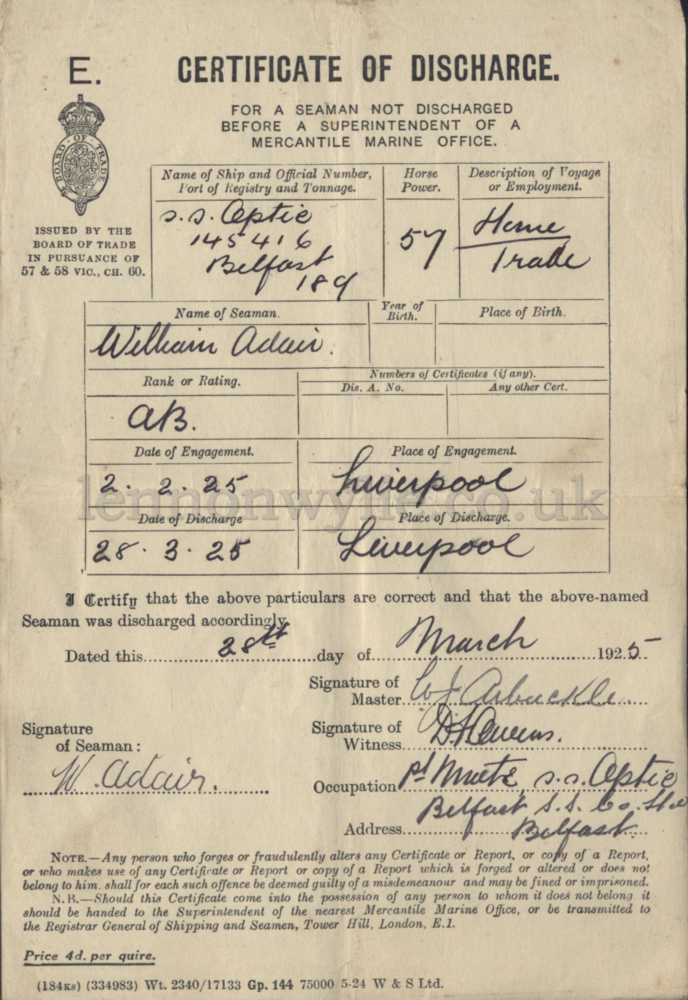 E.
CERTIFICATE OF DISCHARGE.
FOR A SEAMAN NOT DISCHARGED
BEFORE A SUPERINTENDENT OF A
MERCANTILE MARINE OFFICE.
BOARD · OF · TRADE
ISSUED BY THE
BOARD OF TRADE
IN PURSUANCE OF
57 & 58 VIC., CH. 60.
Name of Ship and Official Number,
Port of Registry and Tonnage.
Horse
Power.
Description of Voyage
or Employment.
s.s. Optic
145416
Belfast
189
57
Home
Trade
Name of Seaman.
Year of
Birth.
Place of Birth.
William Adair.
Rank or Rating.
Numbers of Certificates (if any).
Dis. A. No.
Any other Cert.
AB.
Date of Engagement.
Place of Engagement.
2. 2. 25
Liverpool
lennonwylie.co.uk
Date of Discharge
Place of Discharge.
28. 3. 25
Liverpool
I Certify that the above particulars are correct and that the above-named
Seaman was discharged accordingly.
Dated this 28th day of March 1925
Signature of
Master W J Arbuckle.
Signature
of Seaman:
W. Adair.
Signature of
Witness
Occupation 1st Mate s.s. Optic
Belfast S.S. Co. Ltd
Address Belfast.
NOTE.—Any person who forges or fraudulently alters any Certificate or Report, or copy of a Report,
or who makes use of any Certificate or Report or copy of a Report which is forged or altered or does not
belong to him. shall for each such offence be deemed guilty of a misdemeanour and may be fined or imprisoned.
N.B.—Should this Certificate come into the possession of any person to whom it does not belong it
should be handed to the Superintendent of the nearest Mercantile Marine Office, or be transmitted to
the Registrar General of Shipping and Seamen, Tower Hill, London, E.1.
Price 4d. per quire.
(184KS) (334983) Wt. 2340/17133 Gp. 144 75000 5-24 W & S Ltd.